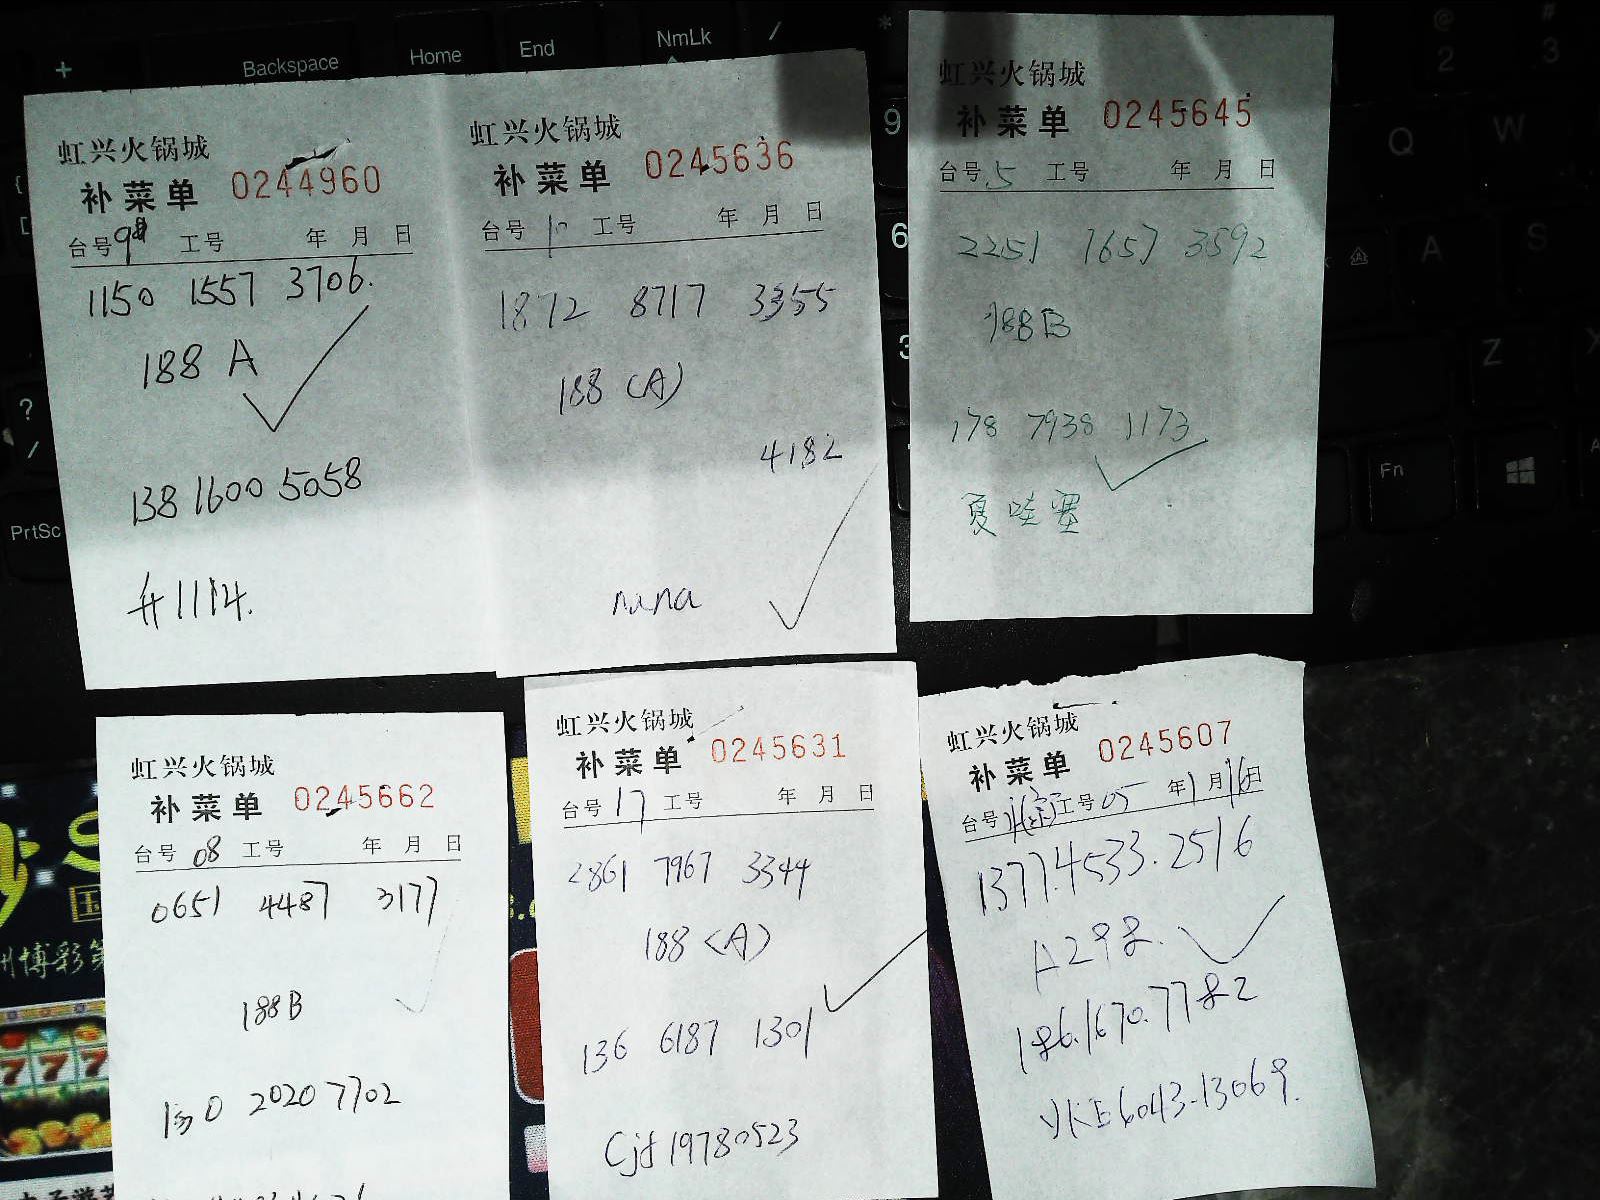 Backspace
Home
End
NmLk
虹兴火锅城
补菜单 0244960
台号 工号 年 月 日
1150 1557 3706.
188 A
138 1600 5058
#1114.
虹兴火锅城
补菜单 0245636
台号 工号 年 月 日
1872 8717 3355
188 (A)
4182
nana
虹兴火锅城
补菜单 0245645
台号 5 工号 年 月 日
2251 7657 3592
188B
178 7938 1173
夏哇赛
PrtSc
Fn
虹兴火锅城
补菜单 0245662
台号 08 工号 年 月 日
0651 4487 3177
188B
130 2020 7702
虹兴火锅城
补菜单 0245631
台号 17 工号 年 月 日
2861 7967 3344
188 (A)
136 6187 1301
Cjf19780523
虹兴火锅城
补菜单 0245607
台号 工号 05 年 1 月 16 日
1377.4533.2516
A298.
186.1670.7782